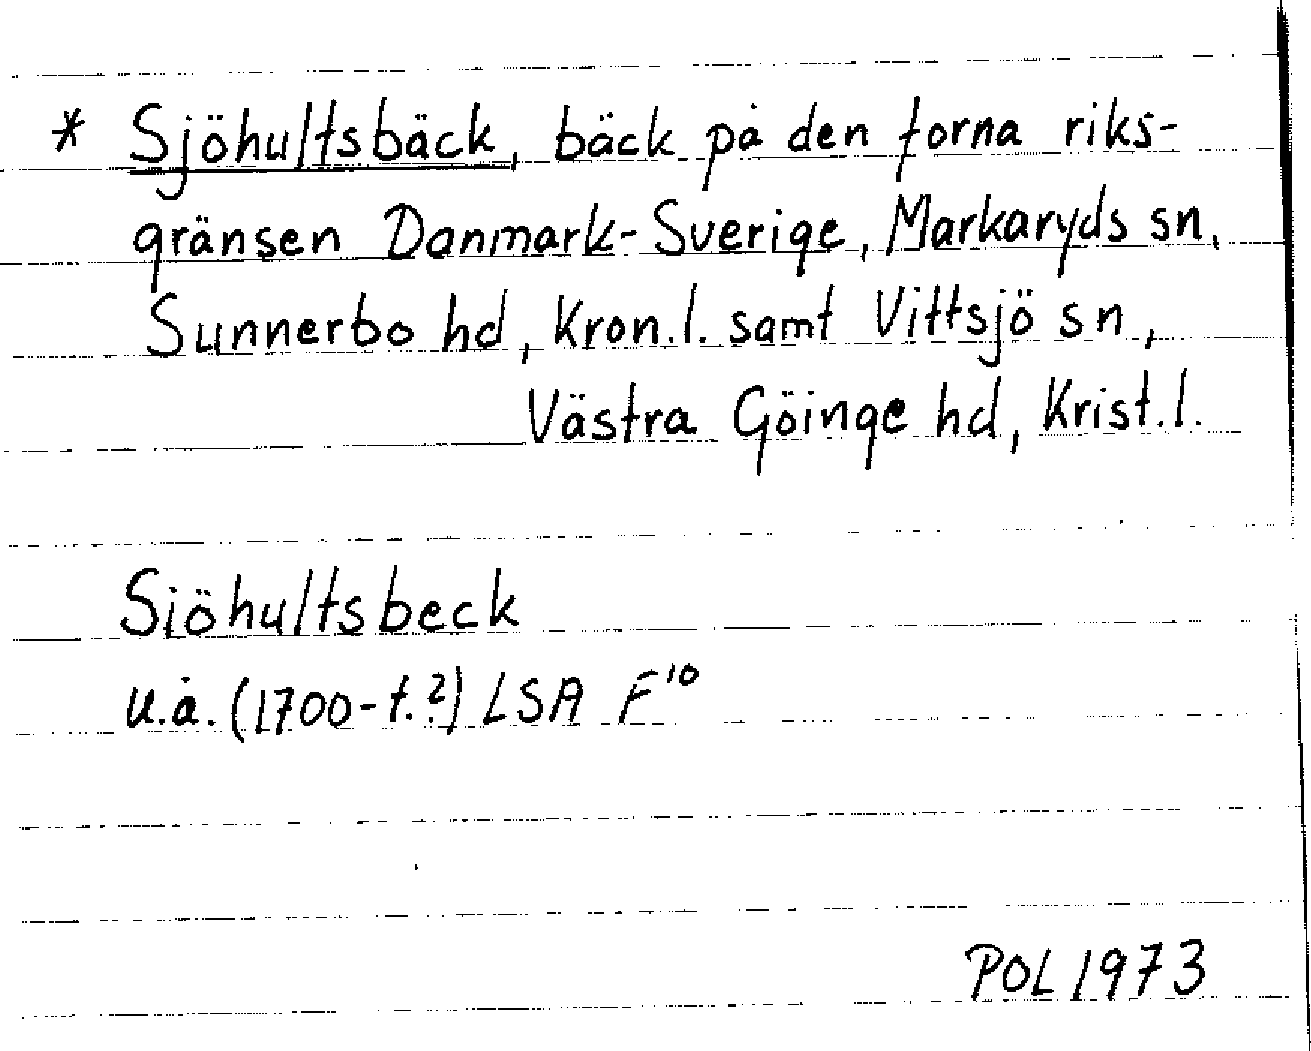 * Sjöhultsbäck, bäck på den forna riks-
gränsen Danmark-Sverige, Markaryds sn,
Sunnerbo hd, Kron.l. samt Vittsjö sn,
Västra Göinge hd, Krist.l.
Siöhultsbeck
u.å. (1700-t.?) LSA F¹⁰
POL 1973